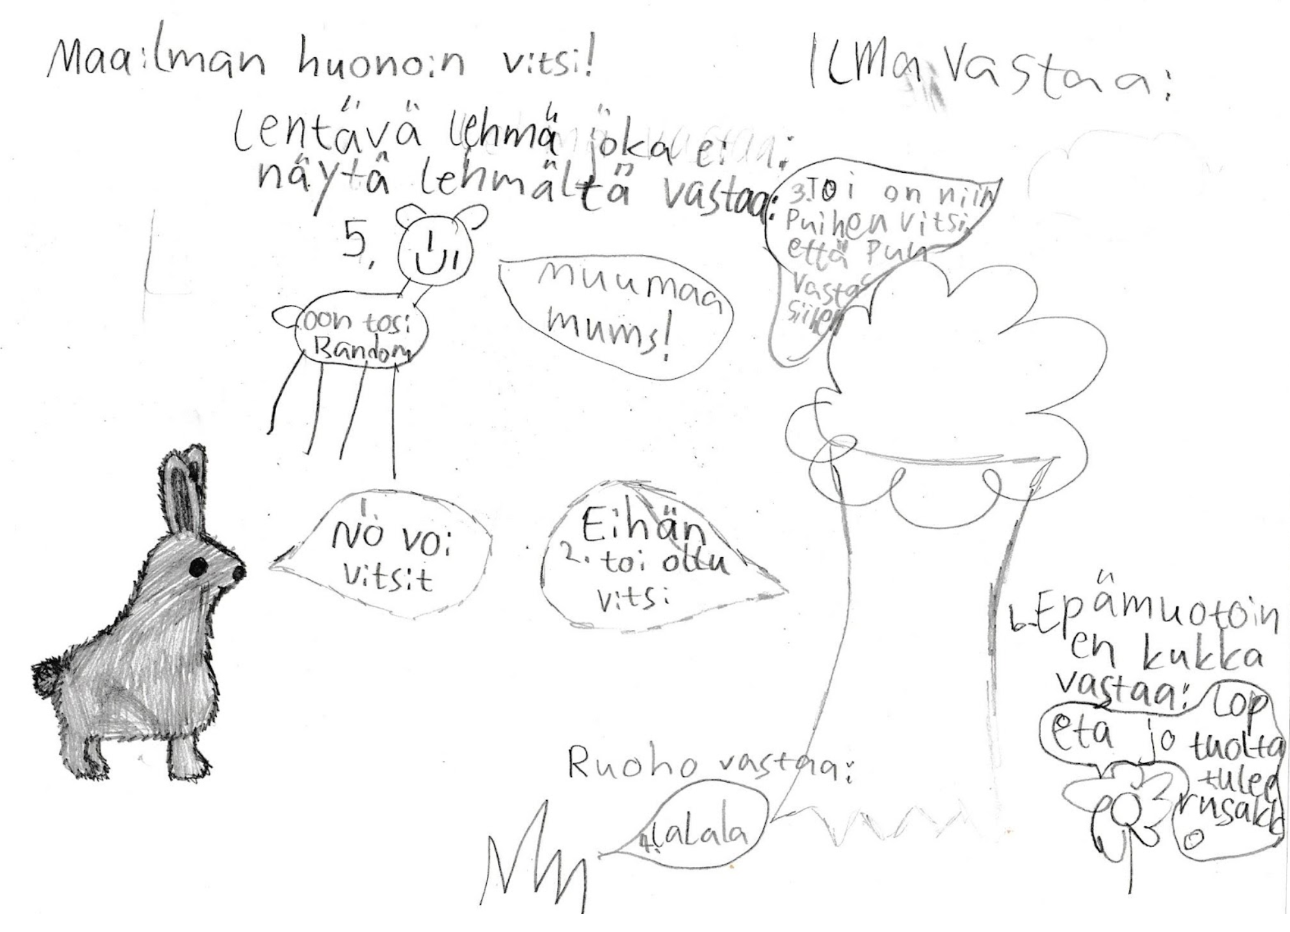 Maailman huonoin vitsi!
ILMa Vastaa:
Lentävä lehmä joka ei
näytä lehmältä vastaa:
5.
oon tosi
Random
muumaa
mums!
3. Toi on niin
Puihen vitsi
että Puu
Vastas
siihen
1
No voi
vitsit
Eihän
2. toi ollu
vitsi
6. Epämuotoin
en kukka
vastaa:
Lop
eta jo tuolta
tulee
rusakk
o
Ruoho vastaa:
4. LaLala